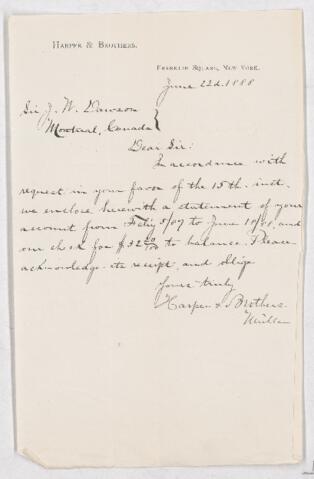 HARPER & BROTHERS.
FRANKLIN SQUARE, NEW YORK.
June 22d. 1888
Sir J. W. Dawson
Montreal, Canada
Dear Sir:
In accordance with
request in your favor of the 15th. inst.
we enclose herewith a statement of your
account from Feb'y to June and
our check for $32 to balance. Please
acknowledge its receipt, and oblige
Yours truly
Harper & Brothers